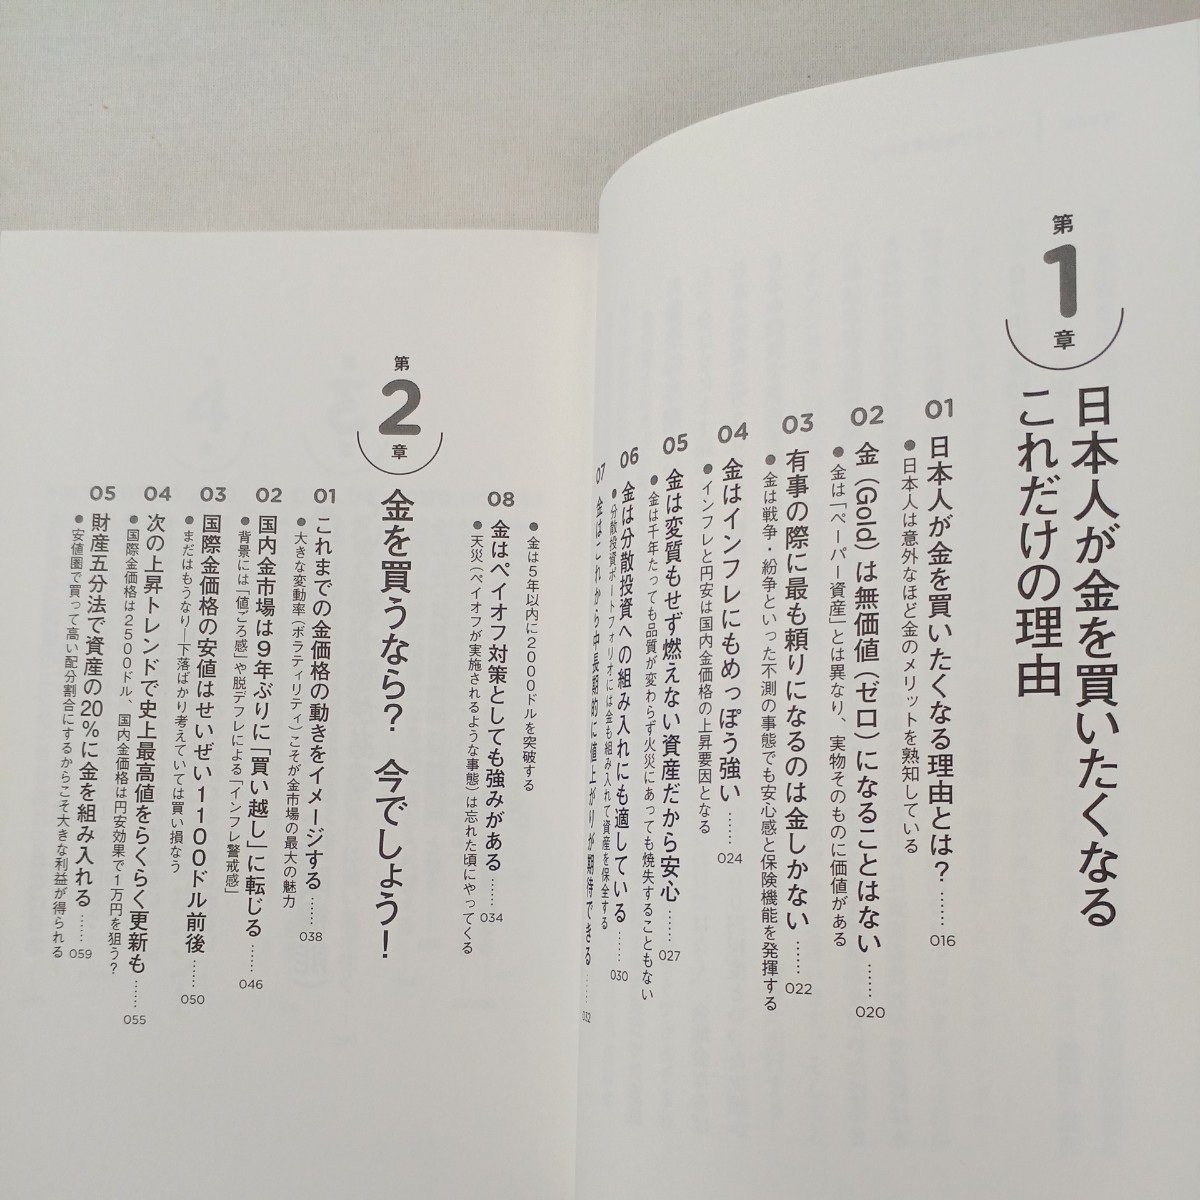 第1章
日本人が金を買いたくなる
これだけの理由
01 日本人が金を買いたくなる理由とは? …… 016
●日本人は意外なほど金のメリットを熟知している
02 金(Gold)は無価値(ゼロ)になることはない …… 020
●金は「ペーパー資産」とは異なり、実物そのものに価値がある
03 有事の際に最も頼りになるのは金しかない …… 022
●金は戦争・紛争といった不測の事態でも安心感と保険機能を発揮する
04 金はインフレにもめっぽう強い …… 024
●インフレと円安は国内金価格の上昇要因となる
05 金は変質もせず燃えない資産だから安心 …… 027
●金は千年たっても品質が変わらず火災にあっても焼失することもない
06 金は分散投資への組み入れにも適している …… 030
●分散投資ポートフォリオには金も組み入れて資産を保全する
07 金はこれから中長期的に値上がりが期待できる …… 032
●金は5年以内に2000ドルを突破する
08 金はペイオフ対策としても強みがある …… 034
●天災(ペイオフが実施されるような事態)は忘れた頃にやってくる
第2章
金を買うなら? 今でしょう!
01 これまでの金価格の動きをイメージする …… 038
●大きな変動率(ボラティリティ)こそが金市場の最大の魅力
02 国内金市場は9年ぶりに「買い越し」に転じる …… 046
●背景には「値ごろ感」や脱デフレによる「インフレ警戒感」
03 国際金価格の安値はせいぜい1100ドル前後 …… 050
●まだはもうなり―下落ばかり考えていては買い損なう
04 次の上昇トレンドで史上最高値をらくらく更新も …… 055
●国際金価格は2500ドル、国内金価格は円安効果で1万円を狙う?
05 財産五分法で資産の20%に金を組み入れる …… 059
●安値圏で買って高い配分割合にするからこそ大きな利益が得られる